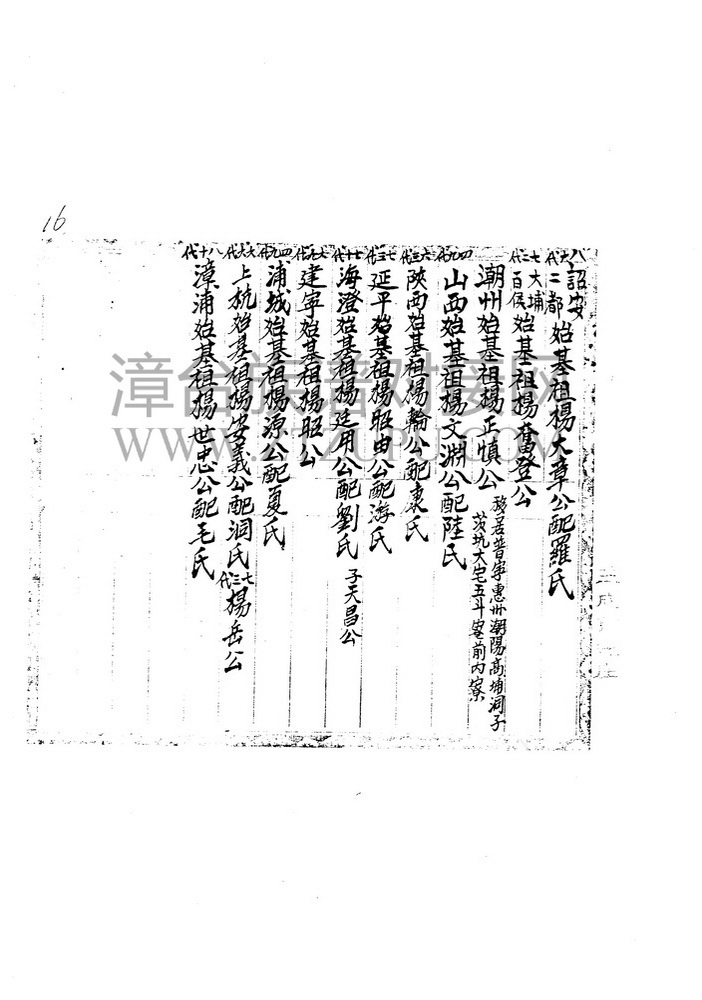 16
八六代 詔安二都始基祖楊大章公配羅氏
七二代 大埔百侯始基祖楊奮登公
潮州始基祖楊正慎公 移居普寧惠州潮陽高埔洞子茨坑大宅五斗寮前內寮
四九代 山西始基祖楊文淵公配陸氏
六三代 陝西始基祖楊輪公配東氏
七三代 延平始基祖楊昭由公配游氏
七十代 海澄始基祖楊廷用公配劉氏 子天昌公
七九代 建寧始基祖楊昭公
四九代 浦城始基祖楊源公配夏氏
六六代 上杭始基祖楊安義公配洞氏 七三代 楊岳公
八十代 漳浦始基祖楊世忠公配毛氏
漳台族谱对接网
WWW.ZTZUPU.COM